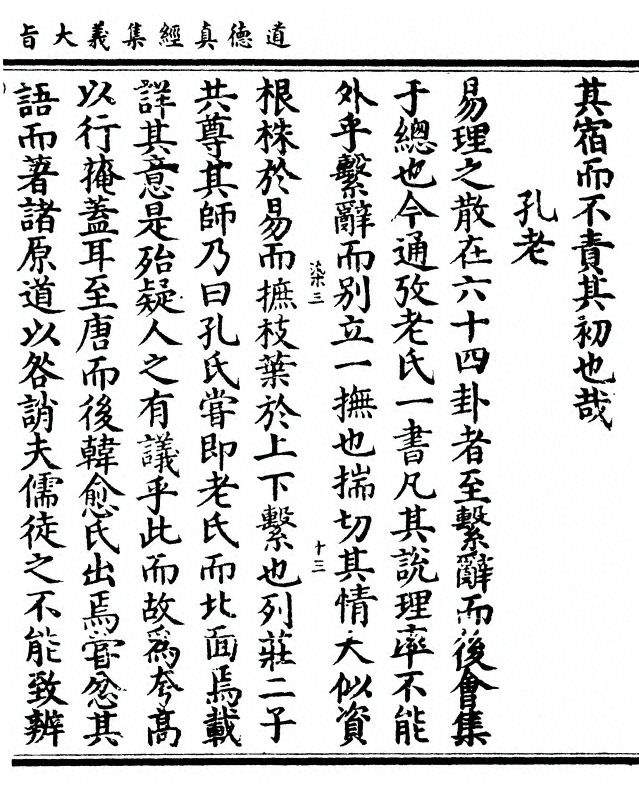 道德真經集義大旨
其宿而不責其初也哉
孔老
易理之散在六十四卦者至繫辭而後會集
于總也今通攷老氏一書凡其說理率不能
外乎繫辭而別立一撫也揣切其情大似資
染三
十三
根株於易而摭枝葉於上下繫也列莊二子
共尊其師乃曰孔氏嘗即老氏而北面焉載
詳其意是殆疑人之有議乎此而故爲夸高
以行掩蓋耳至唐而後韓愈氏出焉嘗忿其
語而著諸原道以咎誚夫儒徒之不能致辨